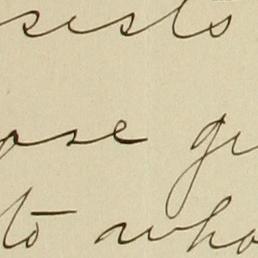 sists
ose gi
to who